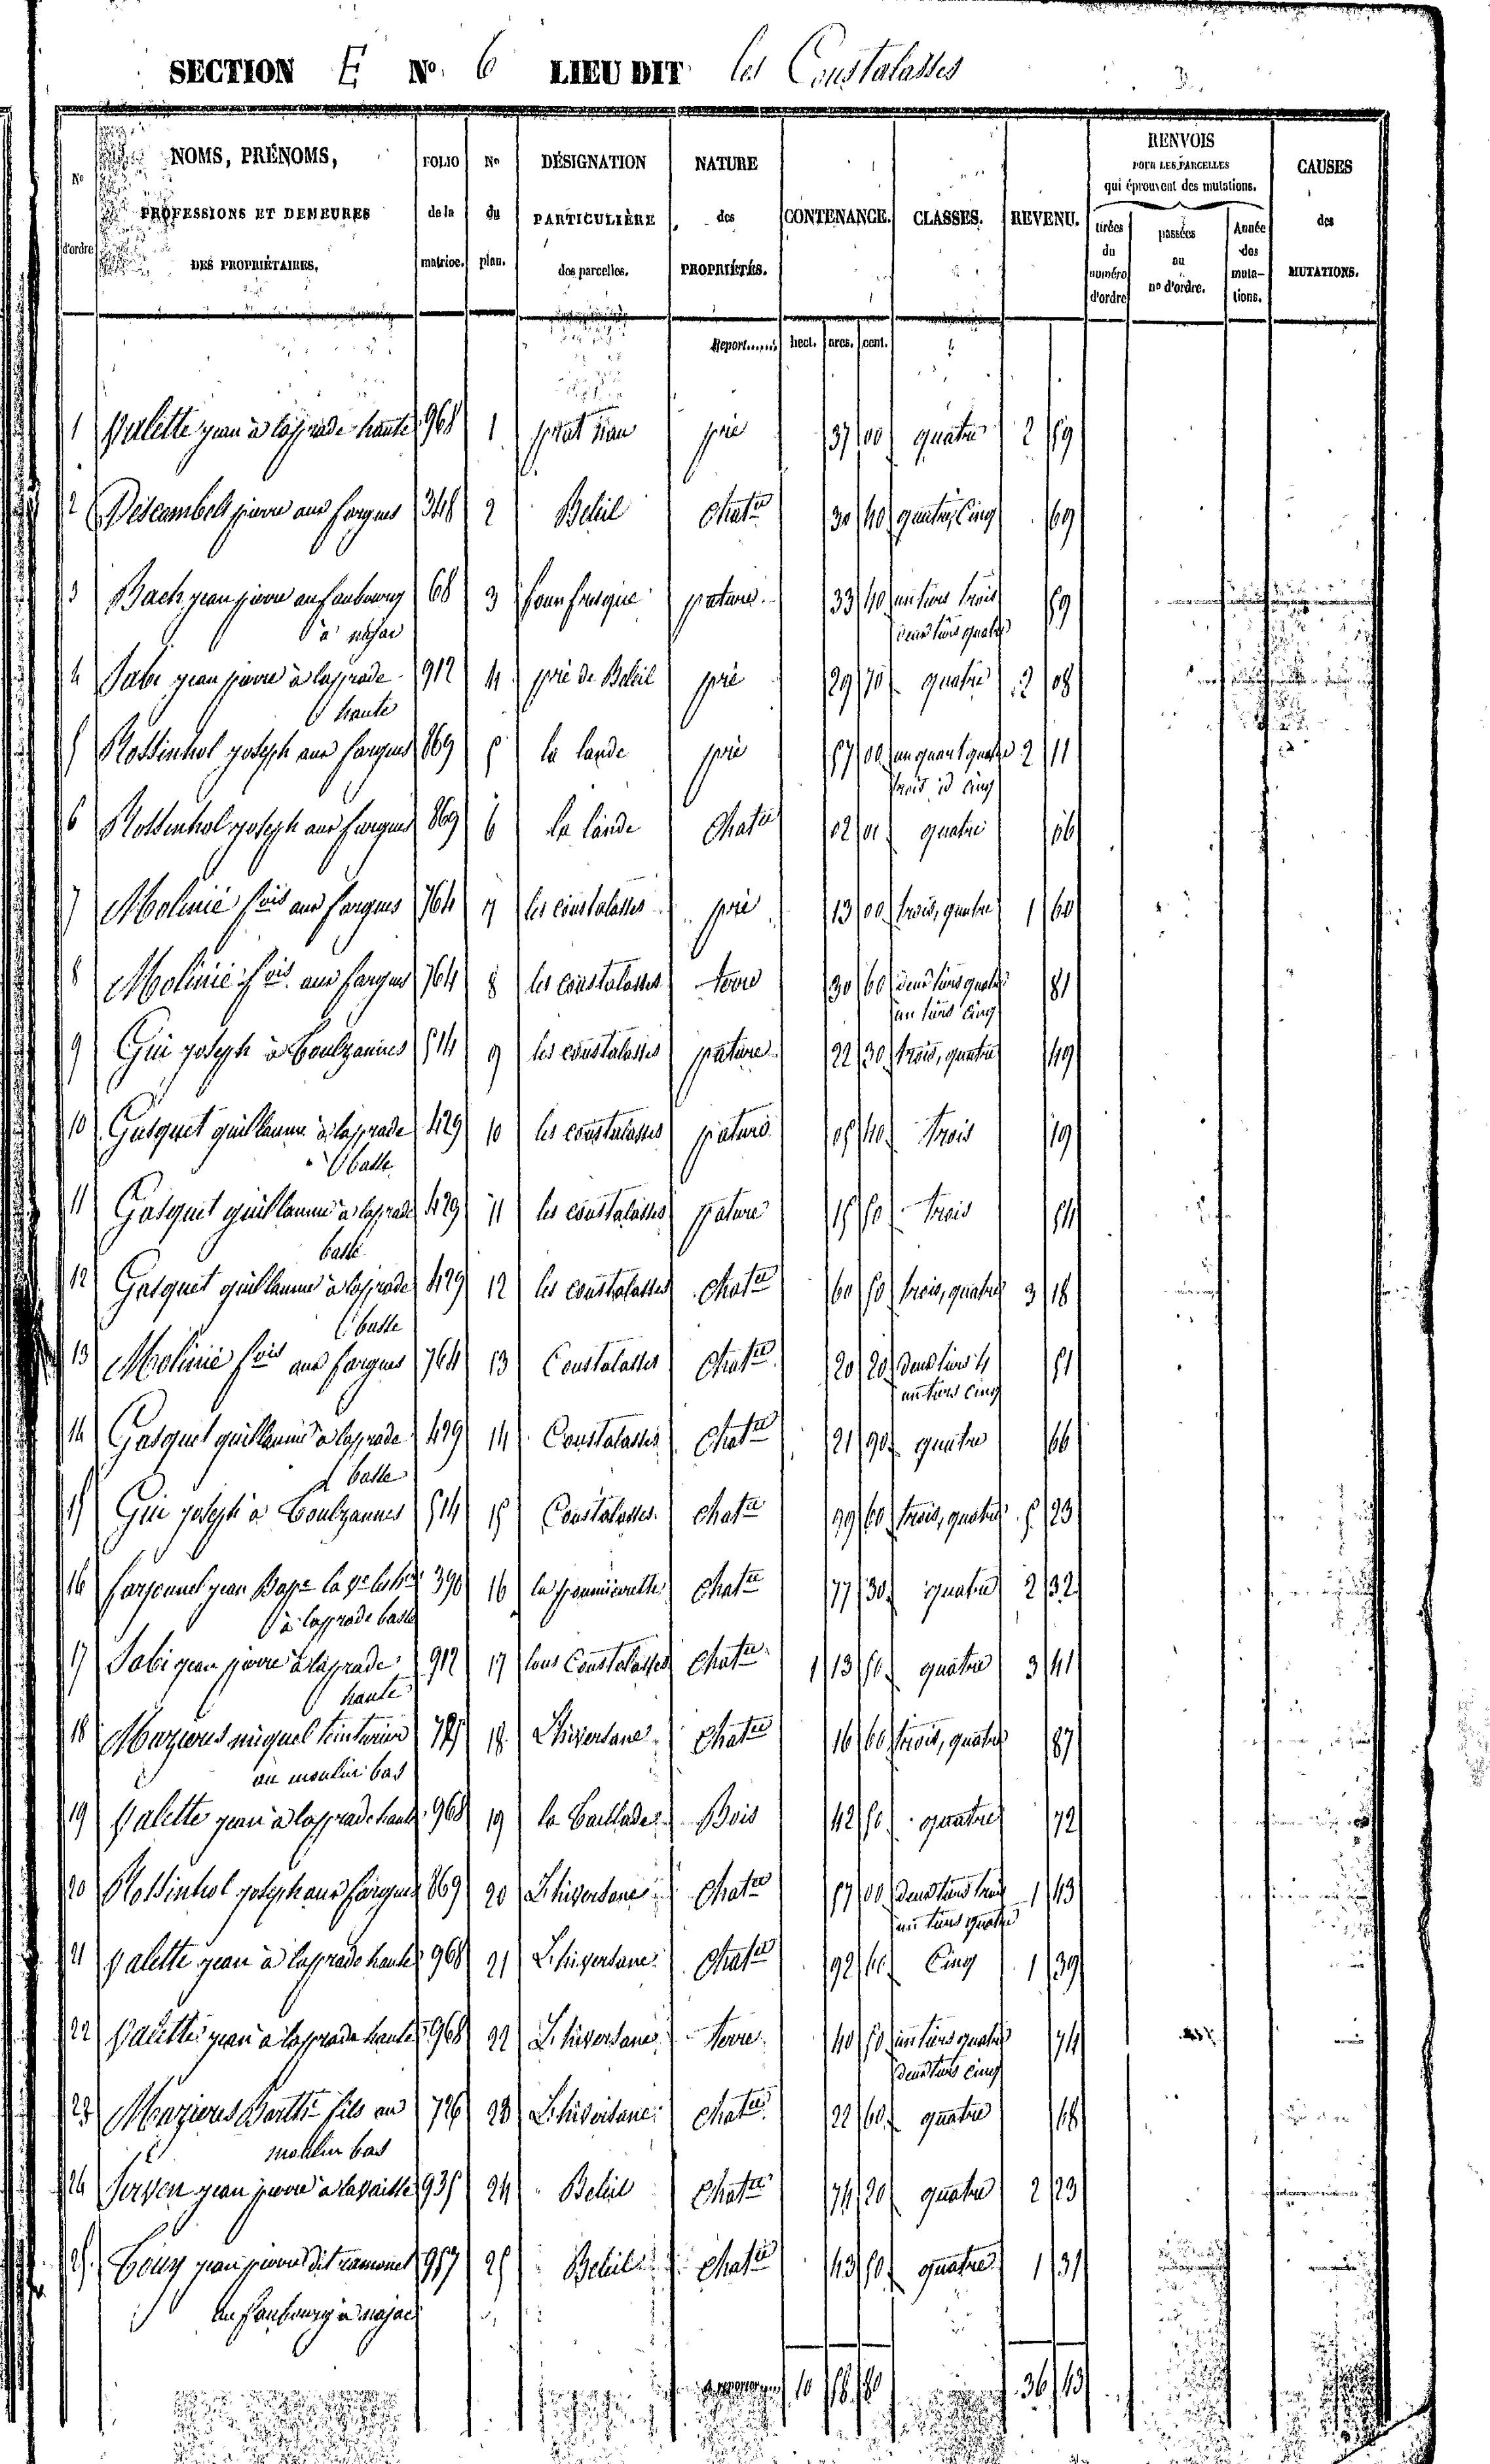 SECTION E No. 6 LIEU DIT les Coustalasses
3.
No d'ordre | NOMS, PRÉNOMS, PROFESSIONS ET DEMEURES DES PROPRIÉTAIRES. | FOLIO de la matrice. | No du plan. | DÉSIGNATION PARTICULIÈRE des parcelles. | NATURE des PROPRIÉTÉS. | CONTENANCE. | CLASSES. | REVENU. | RENVOIS POUR LES PARCELLES qui éprouvent des mutations. | CAUSES des MUTATIONS.
tirées du numéro d'ordre | passées au no d'ordre. | Année des mutations.
Report...... hect. ares. cent.
1 Valette jean à laprade haute 968 1 prat pré 37 00 quatre 2 59
2 Descambels pierre aux fargues 348 2 Beleil Chatie 30 40 quatre, Cinq 69
3 Bach jean pierre au faubourg 68 3 pature 33 40 un tiers trois 59
à najac deux tiers quatre
4 jean pierre à laprade 912 4 pré de Beleil pré 29 70 quatre 2 08
haute
5 Rossinhol joseph aux fargues 869 5 la lande pré 57 00 un quart quatre 2 11
trois id Cinq
6 Rossinhol joseph aux fargues 869 6 la lande Chatie 02 01 quatre 06
7 Molinié fois aux fargues 764 7 les coustalasses pré 13 00 trois, quatre 1 60
8 Molinié fois aux fargues 764 8 les coustalasses terre 30 60 deux tiers quatre 81
un tiers Cinq
9 Gui joseph à 514 9 les coustalasses pature 22 30 trois, quatre 49
10 Gasquet guillaume à laprade 429 10 les coustalasses pature 05 40 trois 19
basse
11 Gasquet guillaume à laprade 429 11 les coustalasses pature 15 50 trois 54
basse
12 Gasquet guillaume à laprade 429 12 les coustalasses Chatie 60 50 trois, quatre 3 18
basse
13 Molinié fois aux fargues 764 13 Coustalasses Chatie 20 20 deux tiers 4 51
un tiers Cinq
14 Gasquet guillaume à laprade 429 14 Coustalasses Chatie 21 90 quatre 66
basse
15 Gui joseph à 514 15 Coustalasses Chatie 99 60 trois, quatre 5 23
16 jean Bapte 390 16 Chatie 77 30 quatre 2 32
à laprade basse
17 jean pierre à laprade 912 17 sous Coustalasses Chatie 1 13 50 quatre 3 41
haute
18 Mazieres miquel teinturier 18 Lhiversane Chatie 16 60 trois, quatre 87
au moulin bas
19 Valette jean à laprade haute 968 19 Bois 42 50 quatre 72
20 Rossinhol joseph aux fargues 869 20 Lhiversane Chatie 57 00 deux tiers trois 1 43
un tiers quatre
21 Valette jean à laprade haute 968 21 Lhiversane Chatie 92 Cinq 1 39
22 Valette jean à laprade haute 968 22 Lhiversane terre 40 50 un tiers quatre 74
deux tiers Cinq
23 Mazieres fils au 726 23 Lhiversane Chatie 22 60 quatre 68
moulin bas
24 jean pierre 935 24 Beleil Chatie 74 20 quatre 2 23
25 jean pierre dit ramonet 957 25 Beleil Chatie 43 50 quatre 1 31
au faubourg à najac
10 36 43